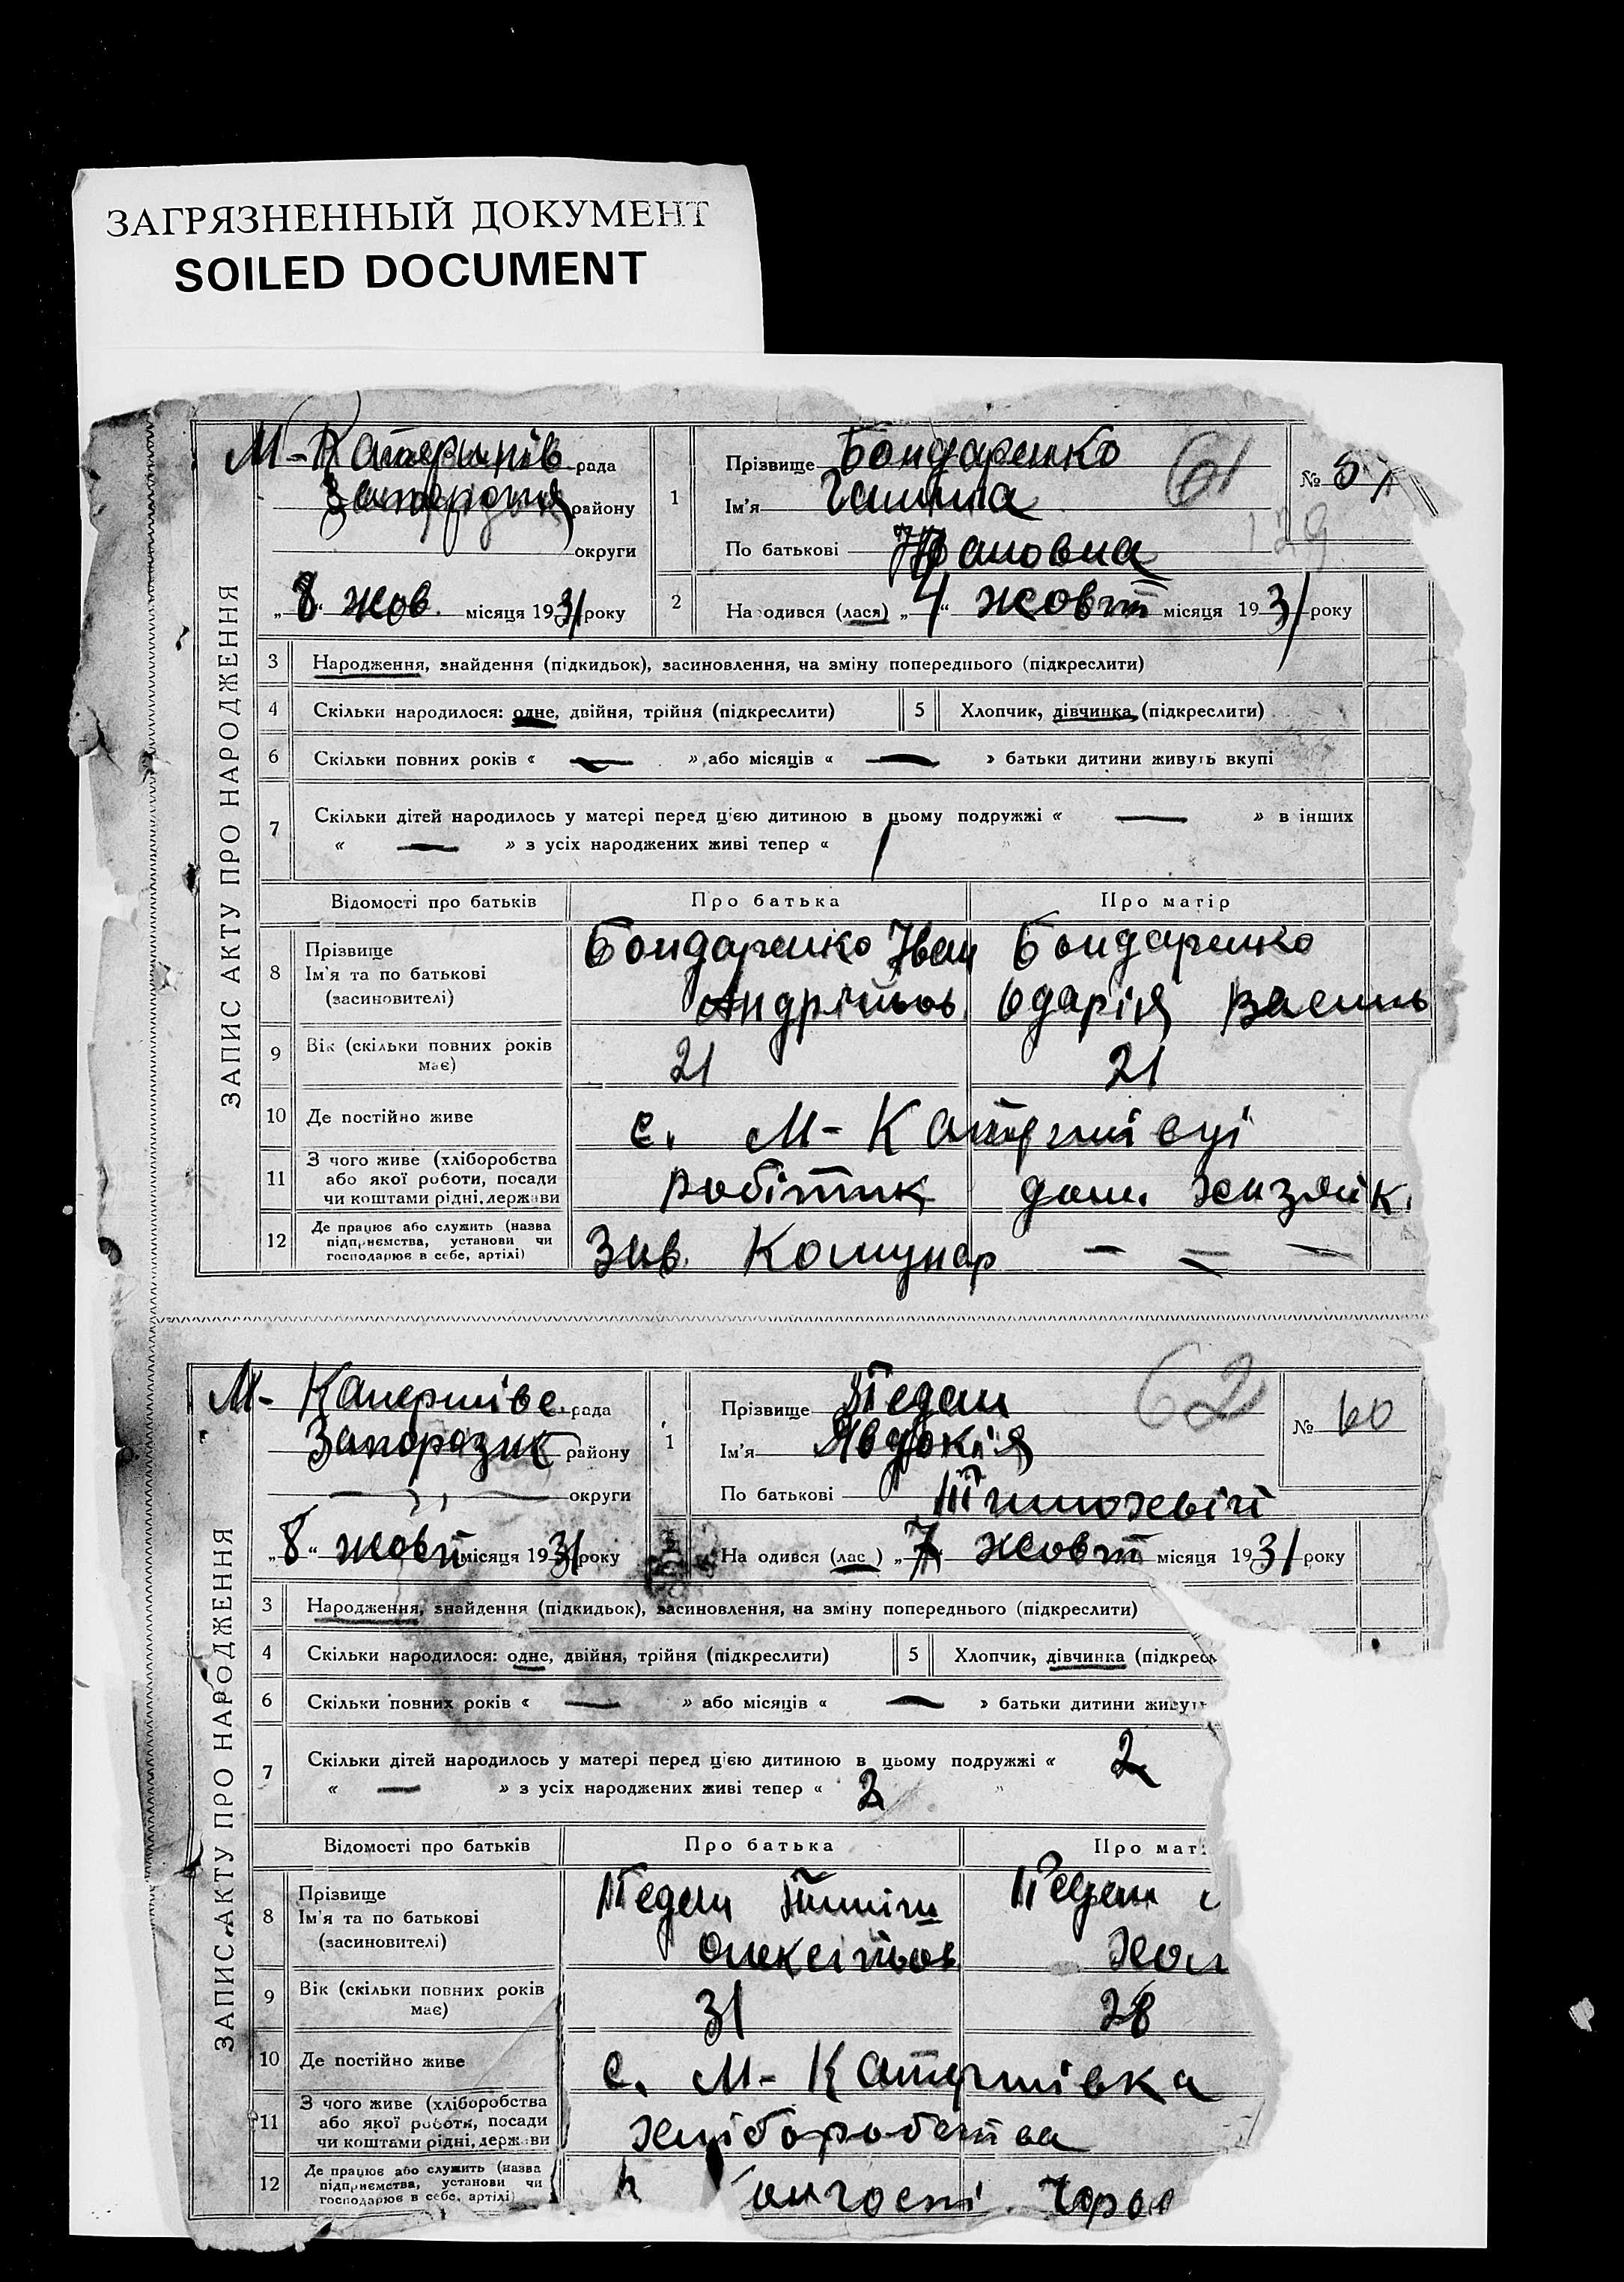 ЗАГРЯЗНЕННЫЙ ДОКУМЕНТ
SOILED DOCUMENT
ЗАПИС АКТУ ПРО НАРОДЖЕННЯ
М-Катеринів рада
району
округи
„8“ жов. місяця 1931 року
1
Прізвище Бондаренко
Ім'я Галина
По батькові Івановна
61
№ 5
129
2 На одився (лася) „4“ жовт місяця 1931 року
3 Народження, знайдення (підкидьок), засиновлення, на зміну попереднього (підкреслити)
4 Скільки народилося: одне, двійня, трійня (підкреслити) 5 Хлопчик, дівчинка (підкреслити)
6 Скільки повних років « — » або місяців « — » батьки дитини живуть вкупі
7 Скільки дітей народилось у матері перед цією дитиною в цьому подружжі « — » в інших
« — » з усіх народжених живі тепер « 1
Відомості про батьків Про батька Про матір
8 Прізвище
Ім'я та по батькові
(засиновителі)
Бондаренко Іван
Андрійов
Бондаренко
Одарія Василь
9 Вік (скільки повних років
має)
21 21
10 Де постійно живе с. М-Катеринівці
11 З чого живе (хліборобства
або якої роботи, посади
чи коштами рідні, держави
робітник дом. хазяйк.
12 Де працює або служить (назва
підприємства, установи чи
господарює в себе, артілі)
Зав. Комунар — — —
ЗАПИС АКТУ ПРО НАРОДЖЕННЯ
М-Катеринівс. рада
Запорізьк району
округи
„8“ жовт місяця 1931 року
1
Прізвище Педан
Ім'я Явдокія
По батькові
62
№ 60
На одився (лас ) „7“ жовт місяця 1931 року
3 Народження, знайдення (підкидьок), засиновлення, на зміну попереднього (підкреслити)
4 Скільки народилося: одне, двійня, трійня (підкреслити) 5 Хлопчик, дівчинка (підкрес
6 Скільки повних років « — » або місяців « — » батьки дитини живуть
7 Скільки дітей народилось у матері перед цією дитиною в цьому подружжі « 2
« — » з усіх народжених живі тепер « 2 "
Відомості про батьків Про батька Про мат
8 Прізвище
Ім'я та по батькові
(засиновителі)
Педан
Олексійов
Педан
9 Вік (скільки повних років
має)
31 28
10 Де постійно живе с. М-Катеринівка
11 З чого живе (хліборобства
або якої роботи, посади
чи коштами рідні, держави
хліборобства
12 Де працює або служить (назва
підприємства, установи чи
господарює в себе, артілі)